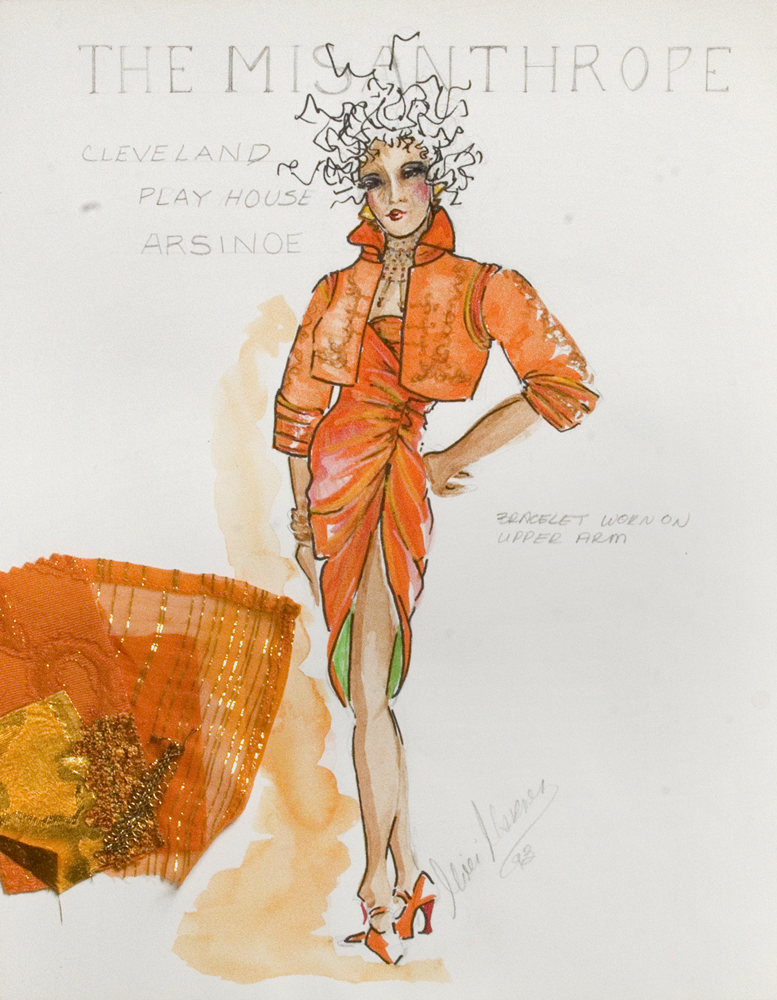 THE MISANTHROPE
CLEVELAND
PLAY HOUSE
ARSINOE
BRACELET WORN ON
UPPER ARM
98